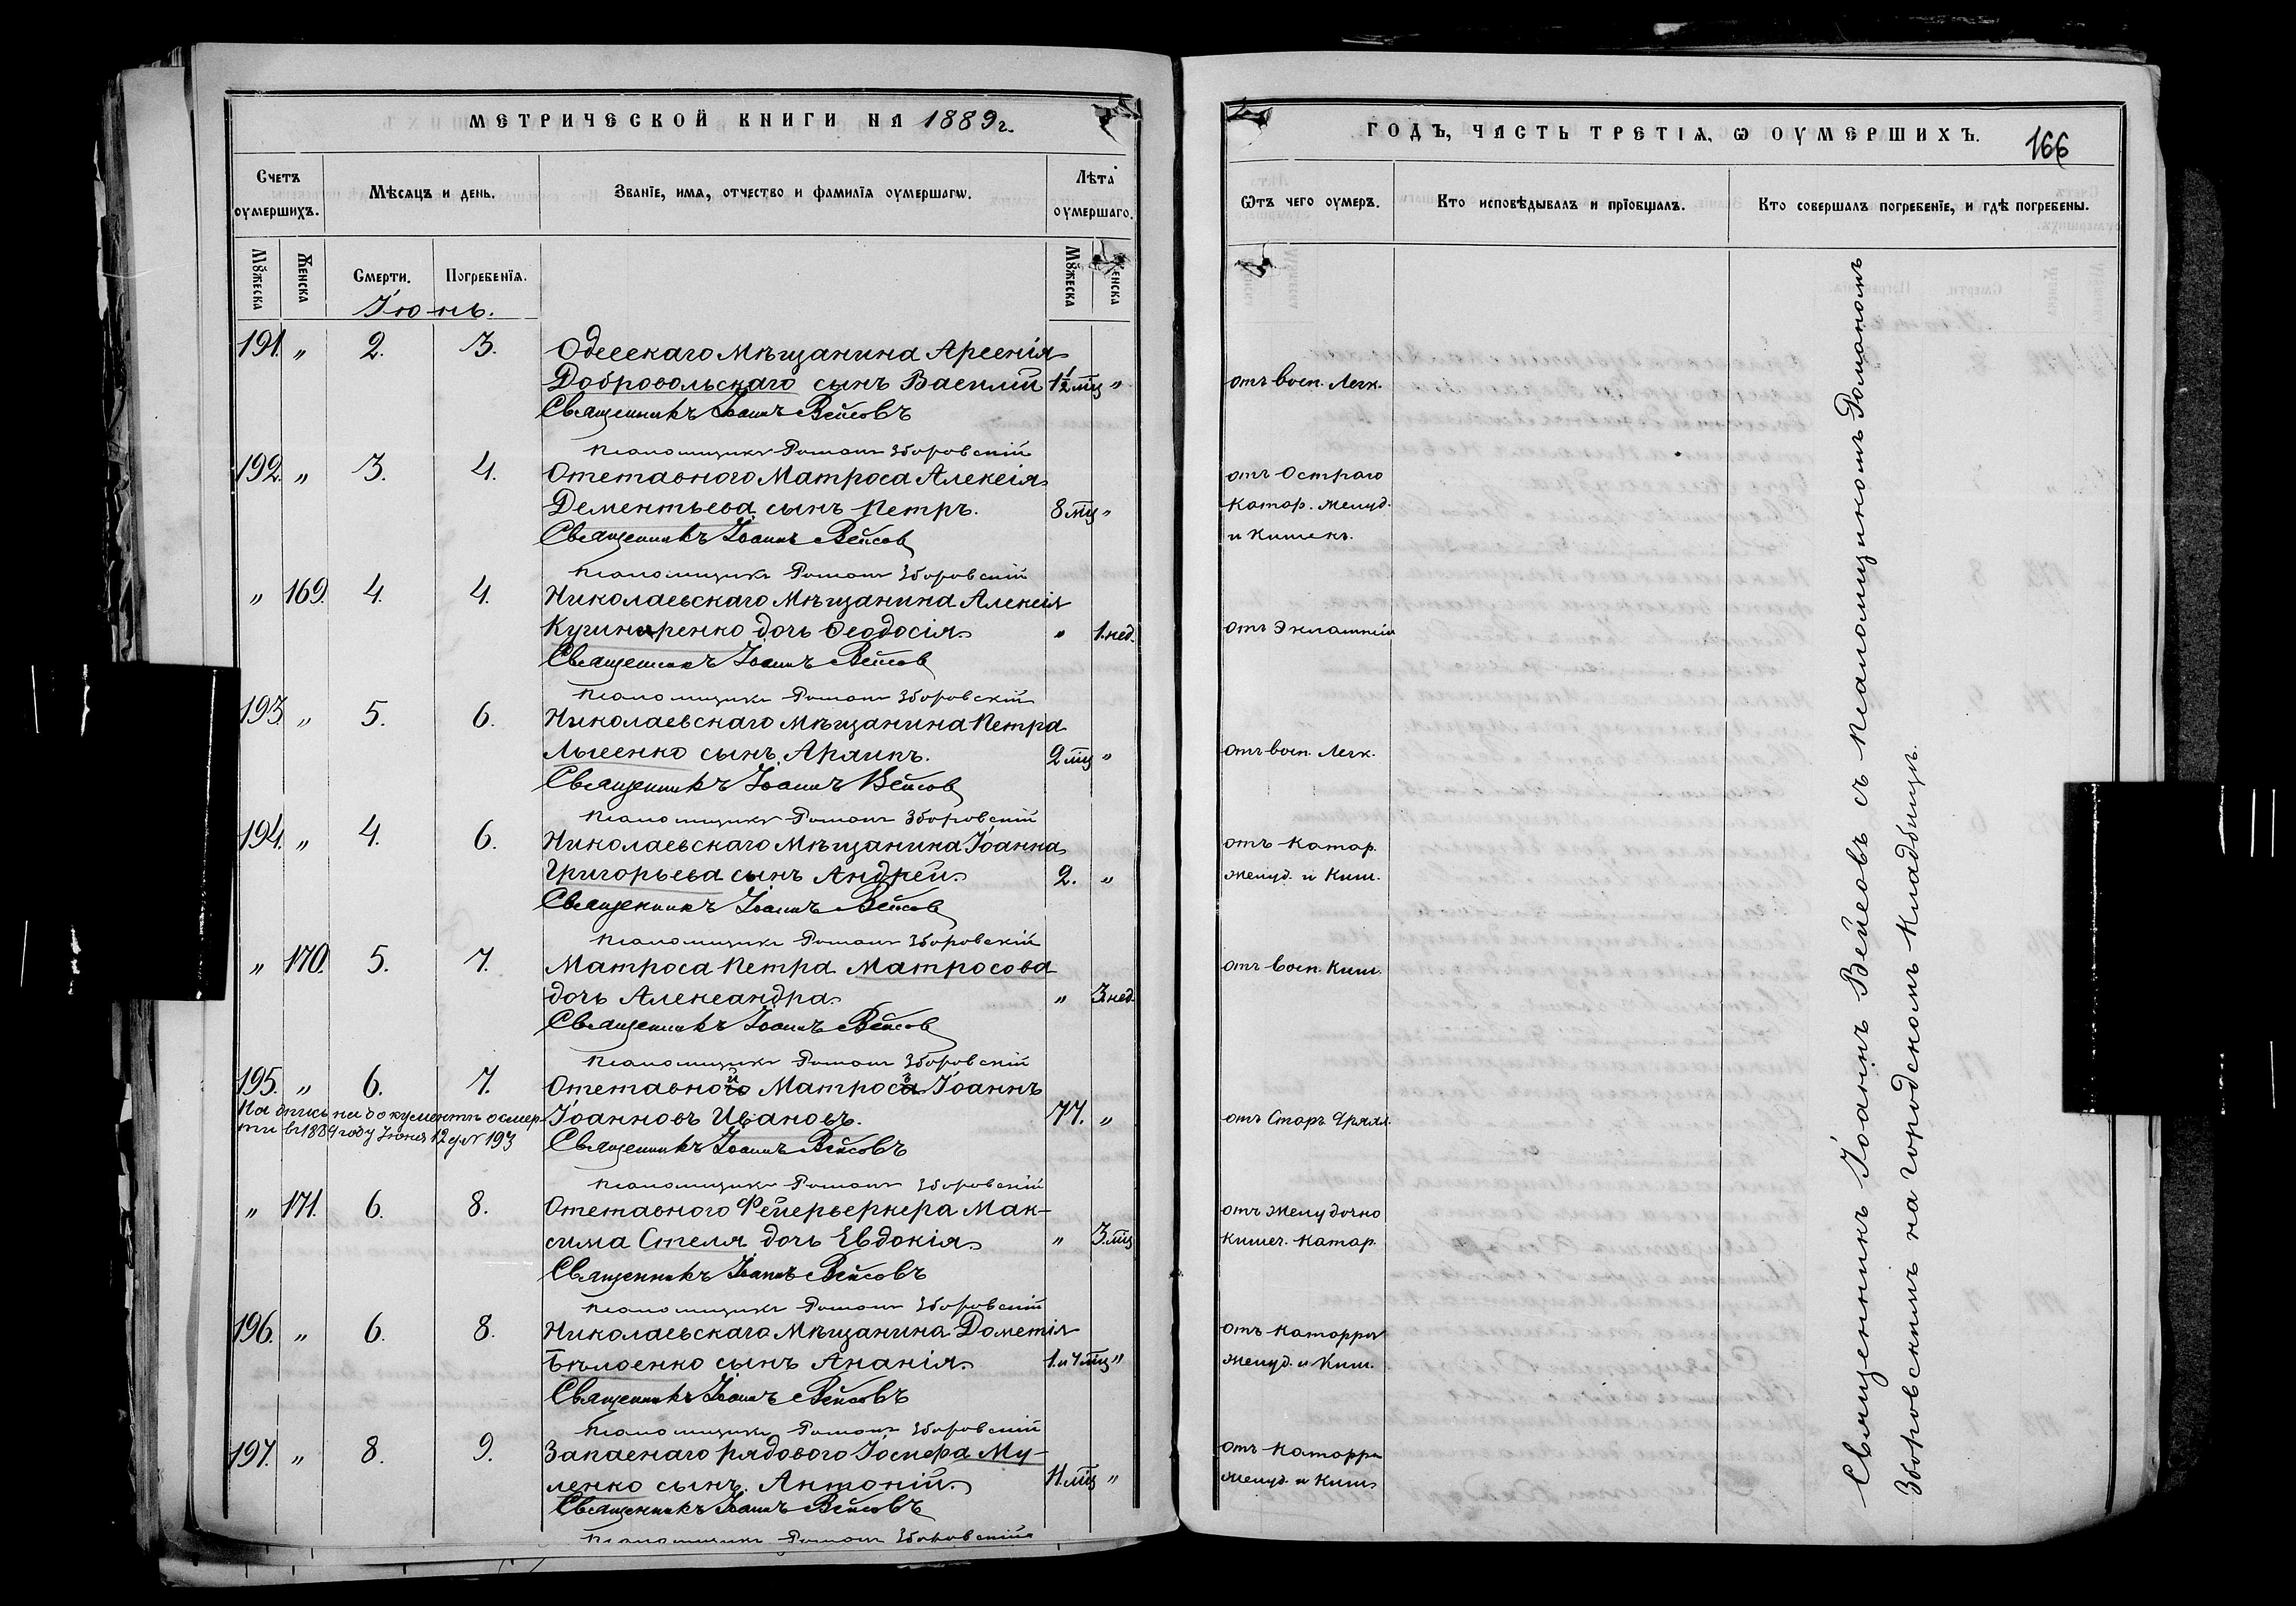 МЕТРИЧЕСКОЙ КНИГИ НА 1889 г.
Счетъ оумершихъ.
Мѣсяцъ и день.
Званїе, имя, отчество и фамилїя оумершагѡ.
Лѣта оумершаго.
Мꙋжеска
Женска
Смерти.
Погребенїя.
Мꙋжеска
енска
Іюнь.
191. " 2. 3. Одесскаго Мѣщанина Арсенія
Добровольскаго сынъ Василій 1½ мц "
Священникъ Іоаннъ Вейсовъ
Псаломщикъ Романъ Зборовскій
192. " 3. 4. Отставного Матроса Алексія
Дементьева сынъ Петръ. 8 мц "
Священникъ Іоаннъ Вейсов
Псаломщикъ Романъ Зборовскій
" 169. 4. 4. Николаевскаго Мѣщанина Алексія
дочь Ѳеодосія " 1. нед.
Священникъ Іоаннъ Вейсов
Псаломщикъ Романъ Зборовскій
193 " 5. 6. Николаевскаго Мѣщанина Петра
Лысенко сынъ Архипъ. 2 мц "
Священникъ Іоаннъ Вейсов
Псаломщикъ Романъ Зборовскій
194. " 4. 6. Николаевскаго Мѣщанина Іоанна
Григорьева сынъ Андрей. 2. "
Священникъ Іоаннъ Вейсов
Псаломщикъ Романъ Зборовскій
" 170. 5. 7. Матроса Петра Матросова
дочь Александра " 3 нед.
Священникъ Іоаннъ Вейсов
Псаломщикъ Романъ Зборовскій
195. " 6. 7. Отставной Матросъ Іоаннъ
Іоанновъ Ивановъ. 77. "
Надпись на документѣ о смер-
ти в 1889 году Іюня 12 д № 193
Священникъ Іоаннъ Вейсовъ
Псаломщикъ Романъ Зборовскій
" 171. 6. 8. Отставного Фейерверкера Мак-
сима Стеля дочь Евдокія " 3 мц
Священникъ Іоаннъ Вейсовъ
Псаломщикъ Романъ Зборовскій
196. " 6. 8. Николаевскаго Мѣщанина Дометія
Бѣлоенко сынъ Ананія 1. и 4 мц "
Священникъ Іоаннъ Вейсовъ
Псаломщикъ Романъ Зборовскій
197. " 8. 9. Запаснаго рядового Іосифа Му-
ленко сынъ Антоній. 11 мц "
Священникъ Іоаннъ Вейсовъ
Псаломщикъ Романъ Зборовскій
ГОДЪ, ЧАСТЬ ТРЕТІЯ, Ѡ ОУМЕРШИХЪ.
166
Ѿтъ чего оумеръ.
Кто исповѣдывалъ и прїобщалъ.
Кто совершалъ погребенїе, и гдѣ погребены.
отъ восп. Легк.
отъ Остраго
Катар. Желуд.
и Кишекъ.
отъ Эклампсіи
отъ восп. Легк.
отъ Катар.
желуд. и Киш.
отъ восп. Киш.
отъ Стар. Дряхл.
отъ Желудочно
Кишеч. Катар.
отъ Катарра
Желуд. и Киш.
отъ Катарра
Желуд. и Киш.
Священникъ Іоаннъ Вейсовъ съ Псаломщикомъ Романомъ
Зборовскимъ на городскомъ Кладбищѣ.